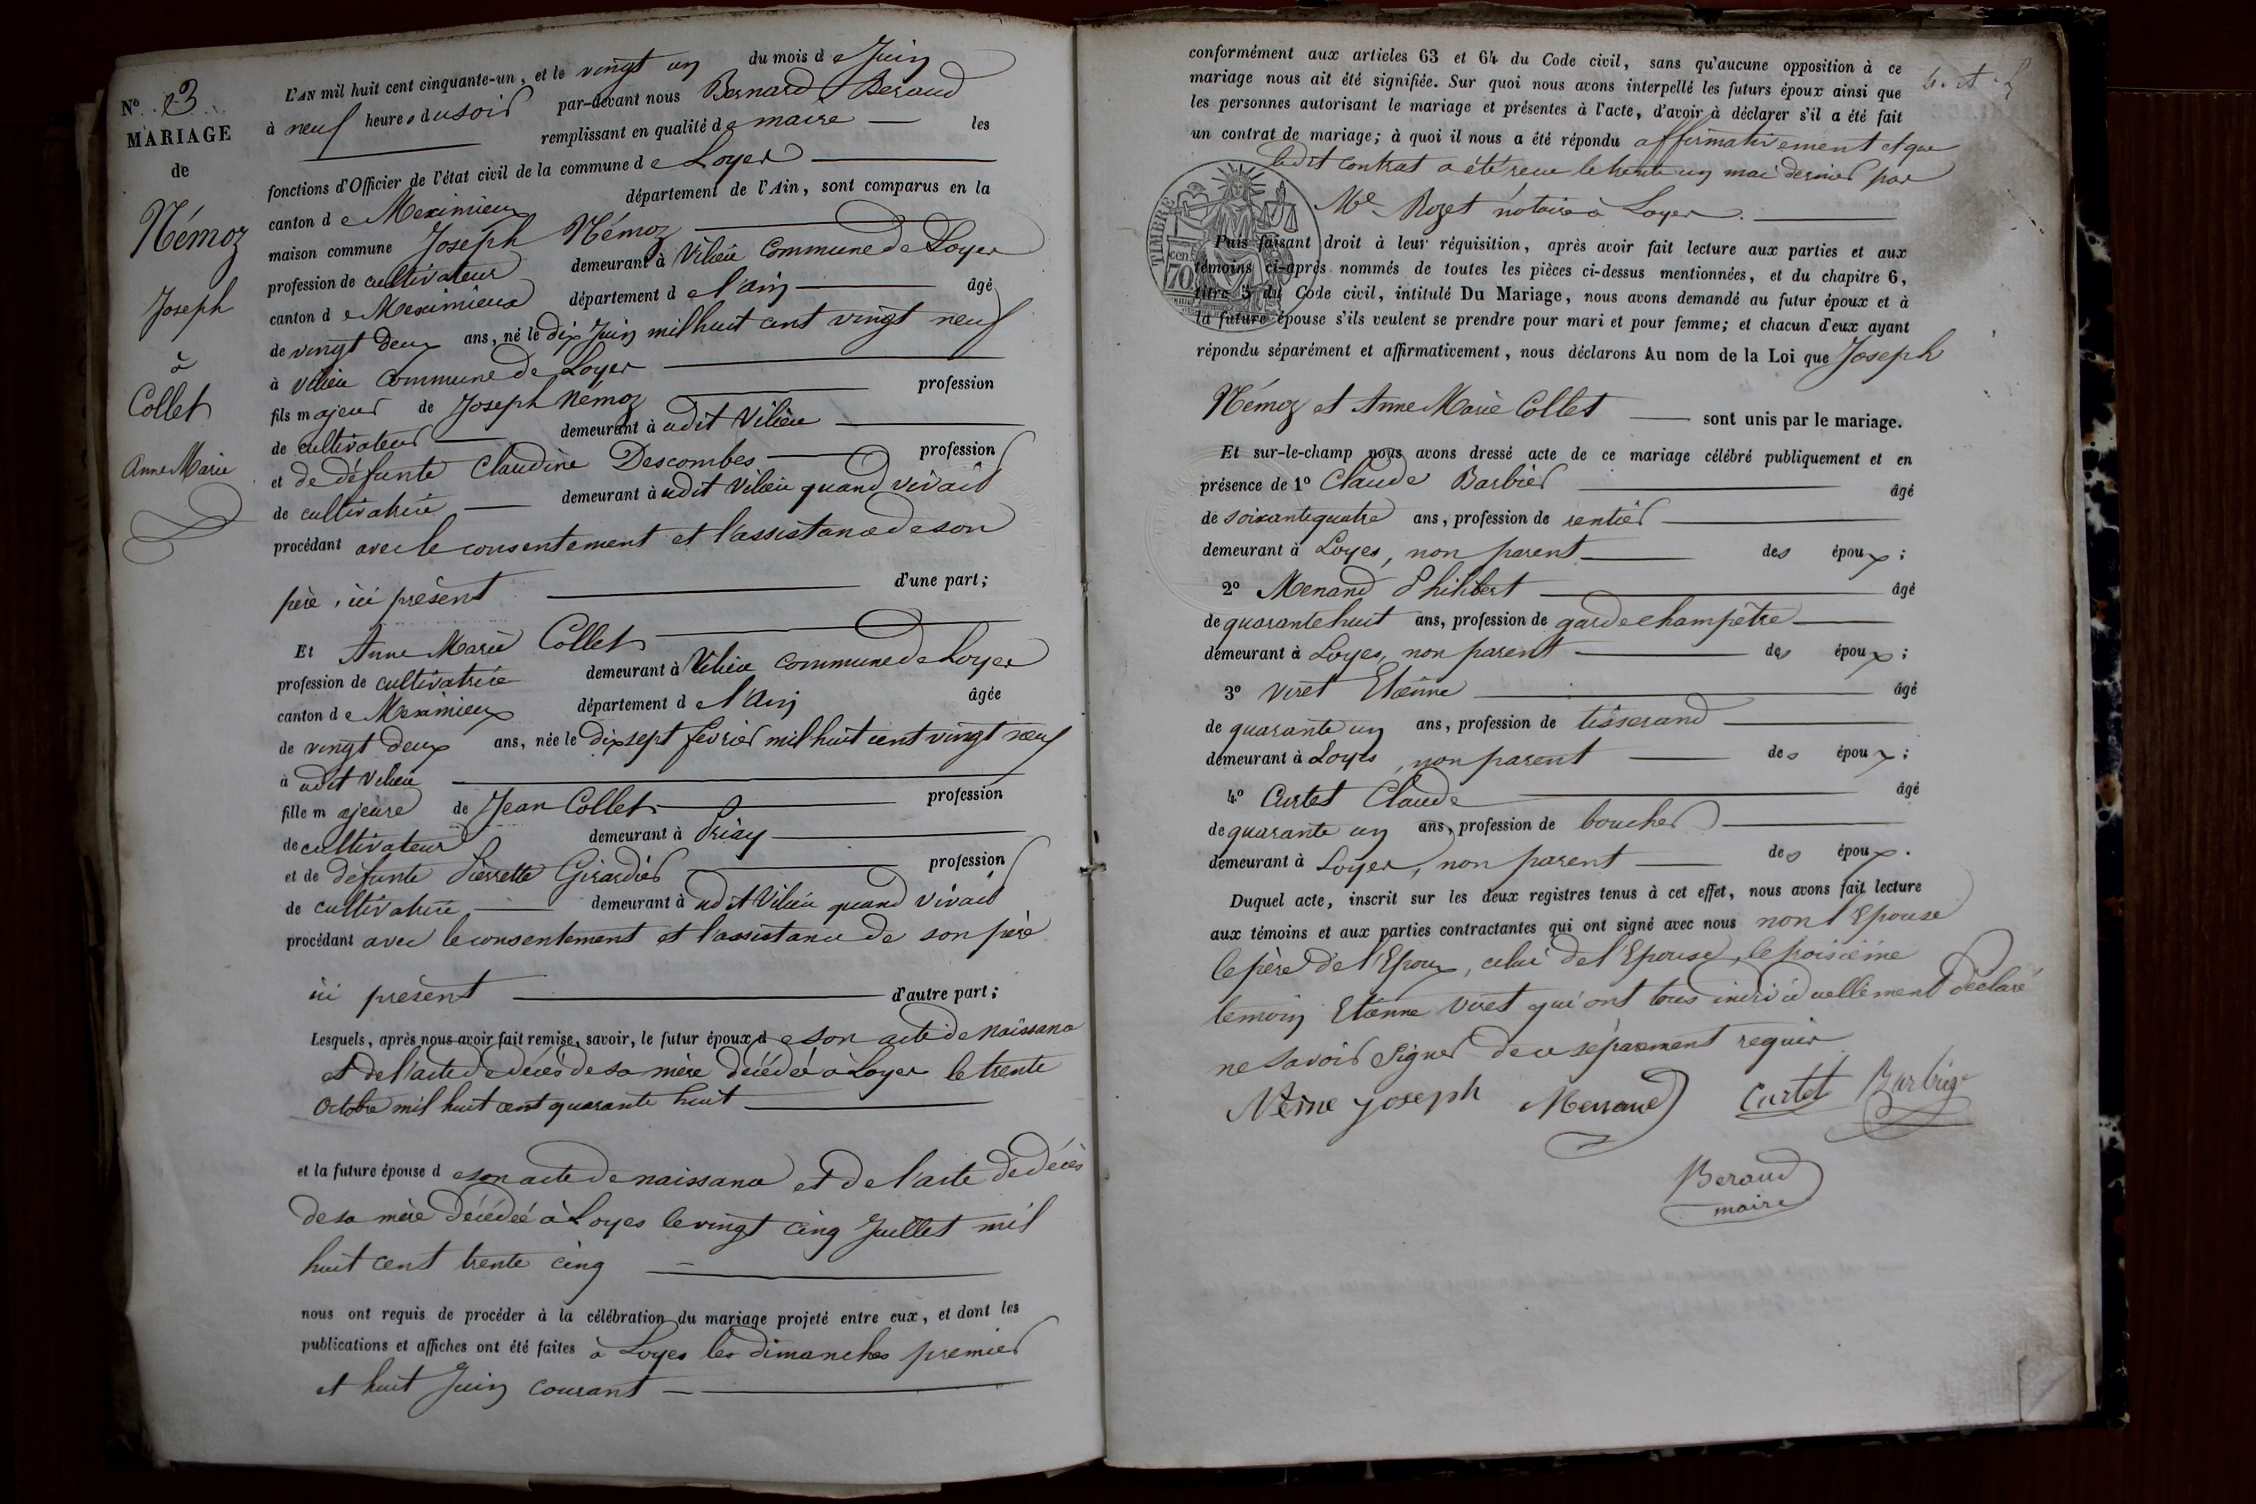 N° 13
MARIAGE
de
Némoz
Joseph
à
Collet
Anne Marie
L'AN mil huit cent cinquante-un, et le vingt un du mois de Juin
à neuf heures du soir par-devant nous Bernard Beraud
remplissant en qualité de maire les
fonctions d'Officier de l'état civil de la commune de Loyes
canton de Meximieux département de l'Ain, sont comparus en la
maison commune Joseph Némoz
profession de cultivateur demeurant à Vilieu commune de Loyes
canton de Meximieux département de l'ain âgé
de vingt deux ans, né le dix Juin mil huit cent vingt neuf
à Vilieu commune de Loyes
fils majeur de Joseph Nemoz profession
de cultivateur demeurant audit Vilieu
et de défunte Claudine Descombes profession
de cultivatrice demeurant à udit Vilieu quand vivait
procédant avec le consentement et l'assistance de son
père, ici présent d'une part;
Et Anne Marie Collet
profession de cultivatrice demeurant à Vilieu commune de Loyes
canton de Meximieux département de l'Ain âgée
de vingt deux ans, née le dix sept fevrier mil huit cent vingt neuf
à udit Vilieu
fille majeure de Jean Collet profession
de cultivateur demeurant à Priay
et de défunte Pierrette Girardier profession
de cultivatrice demeurant à udit Vilieu quand vivait
procédant avec le consentement et l'assistance de son père
ici présent d'autre part;
Lesquels, après nous avoir fait remise, savoir, le futur époux de son acte de naissance
et de l'acte de décès de sa mère décédée à Loyes le trente
Octobre mil huit cent quarante huit
et la future épouse de son acte de naissance et de l'acte de décès
de sa mère décédée à Loyes le vingt cinq Juillet mil
huit cent trente cinq
nous ont requis de procéder à la célébration du mariage projeté entre eux, et dont les
publications et affiches ont été faites à Loyes les dimanches premier
et huit Juin courant
conformément aux articles 63 et 64 du Code civil, sans qu'aucune opposition à ce
mariage nous ait été signifiée. Sur quoi nous avons interpellé les futurs époux ainsi que
les personnes autorisant le mariage et présentes à l'acte, d'avoir à déclarer s'il a été fait
un contrat de mariage; à quoi il nous a été répondu affirmativement et que
ledit contrat a été reçu le trente un mai dernier par
Me Rozet notaire à Loyes.
TIMBRE
cen.
70
Puis faisant droit à leur réquisition, après avoir fait lecture aux parties et aux
témoins ci-après nommés de toutes les pièces ci-dessus mentionnées, et du chapitre 6,
titre 5 du Code civil, intitulé Du Mariage, nous avons demandé au futur époux et à
la future épouse s'ils veulent se prendre pour mari et pour femme; et chacun d'eux ayant
répondu séparément et affirmativement, nous déclarons Au nom de la Loi que Joseph
Némoz et Anne Marie Collet sont unis par le mariage.
Et sur-le-champ nous avons dressé acte de ce mariage célébré publiquement et en
présence de 1° Claude Barbier âgé
de soixante quatre ans, profession de rentier
demeurant à Loyes, non parent des époux;
2° Menand Philibert âgé
de quarante huit ans, profession de garde champêtre
demeurant à Loyes, non parent des époux;
3° Viret Etienne âgé
de quarante un ans, profession de tisserand
demeurant à Loyes, non parent des époux;
4° Curtet Claude âgé
de quarante un ans, profession de boucher
demeurant à Loyes, non parent des époux.
Duquel acte, inscrit sur les deux registres tenus à cet effet, nous avons fait lecture
aux témoins et aux parties contractantes qui ont signé avec nous non l'Epouse
le père de l'Epoux, celui de l'Epouse, le troisième
temoin Etienne Viret qui ont tous individuellement déclaré
ne savoir signer de ce séparement requis
Néme Joseph Menand Curtet Barbier
Beraud
maire